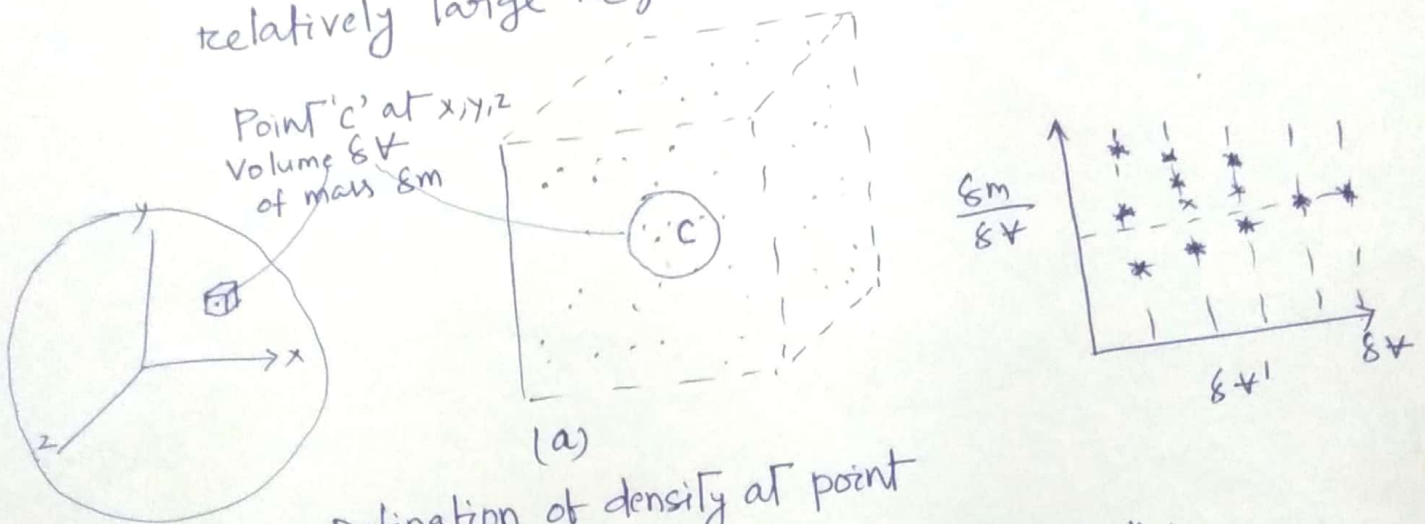 relatively large
Point 'C' at x,y,z
Volume δV
of mass δm
y
x
z
C
(a)
δm
δV
δV'
δV
of density at point